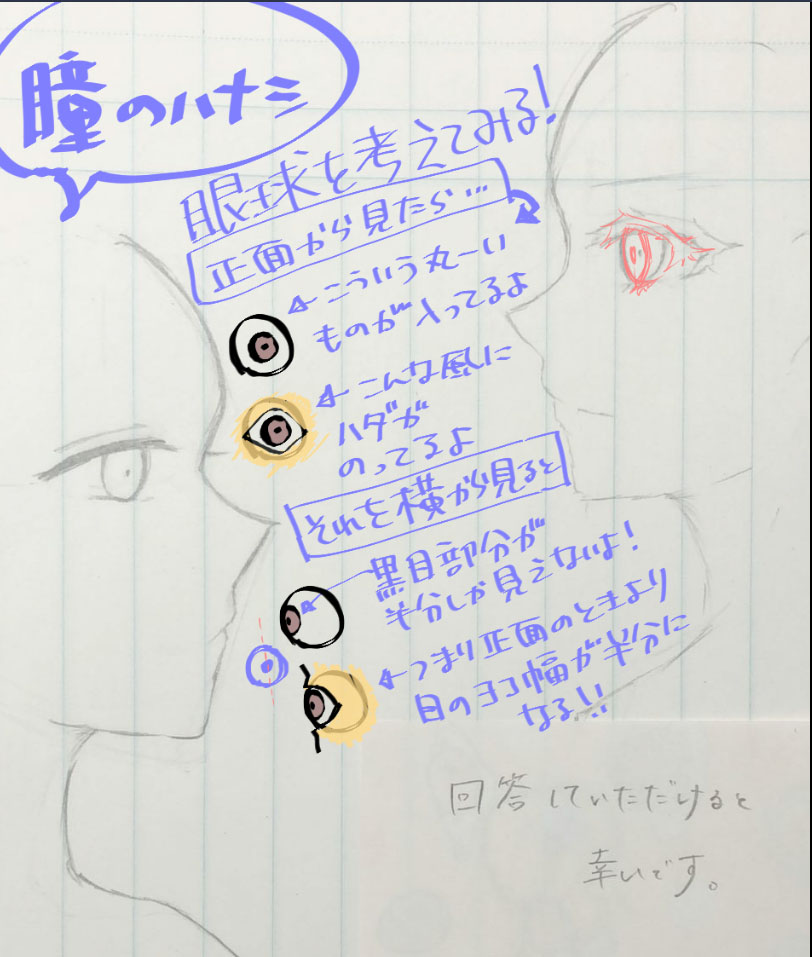 瞳のハナシ
眼球を考えてみる!
正面から見たら…
こういう丸ーい
ものが入ってるよ
こんな風に
ハダが
のってるよ
それを横から見ると
黒目部分が
半分しか見えないよ!
つまり正面のときより
目のヨコ幅が半分に
なる!!
回答していただけると
幸いです。